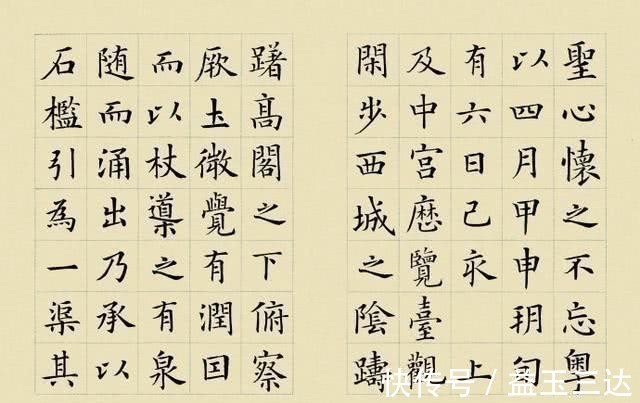 聖心懷之不忘粵
以四月甲申朔旬
有六日己亥 上
及中宮歷覽臺觀
閑步西城之陰躊
躇高閣之下俯察
厥土微覺有潤因
而以杖導之有泉
随而涌出乃承以
石檻引為一渠其
快传号 / 益玉三达